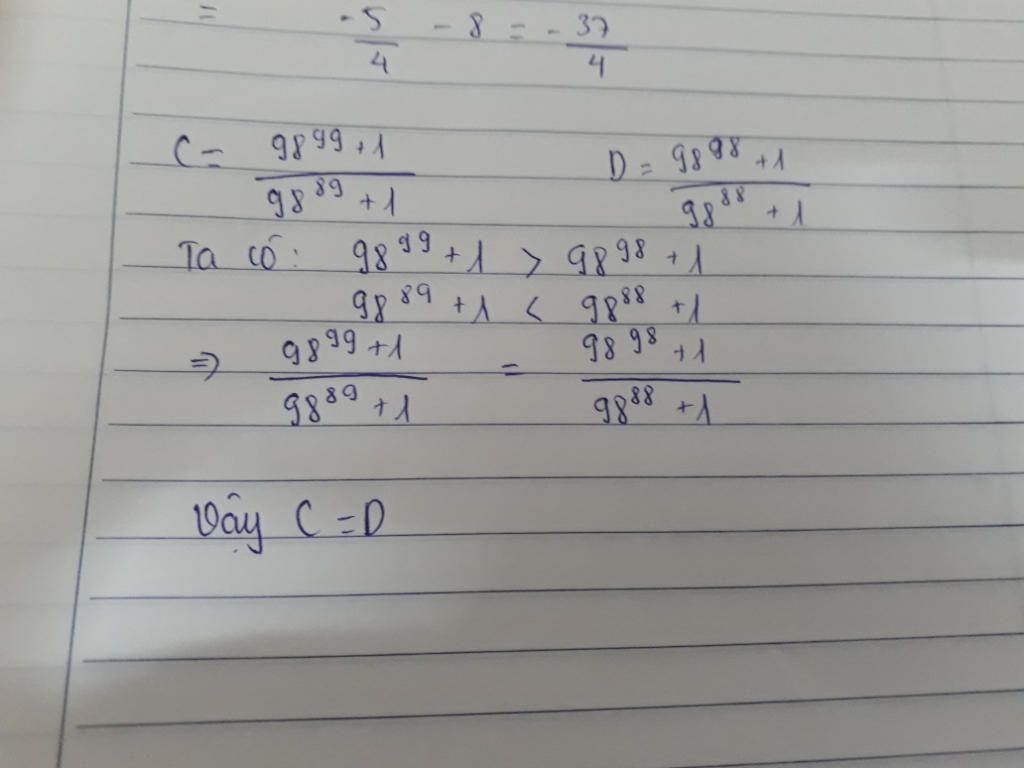 = -5/4 - 8 = -37/4
C = (98^99 + 1)/(98^89 + 1) D = (98^98 + 1)/(98^88 + 1)
Ta có: 98^99 + 1 > 98^98 + 1
98^89 + 1 < 98^88 + 1
=> (98^99 + 1)/(98^89 + 1) = (98^98 + 1)/(98^88 + 1)
Vậy C = D